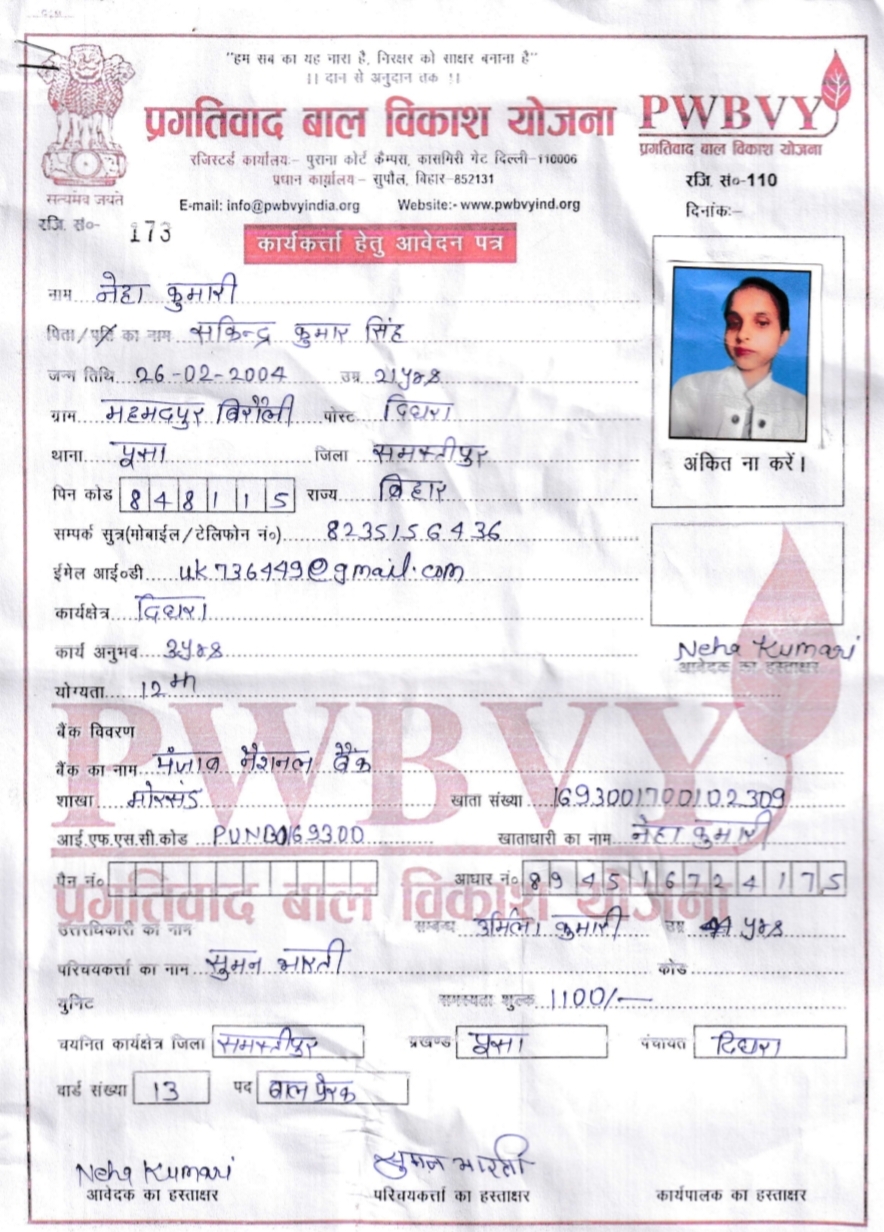 "हम सब का यह नारा है, निरक्षर को साक्षर बनाना है"
।। दान से अनुदान तक ।।
प्रगतिवाद बाल विकाश योजना PWBVY
प्रगतिवाद बाल विकाश योजना
रजिस्टर्ड कार्यालय:– पुराना कोर्ट कैम्पस, कासमिरी गेट दिल्ली–110006
प्रधान कार्यालय – सुपौल, बिहार–852131
रजि. सं०-110
सत्यमेव जयते
E-mail: info@pwbvyindia.org Website:- www.pwbvyind.org
दिनांकः–
रजि. सं०- 173
कार्यकर्त्ता हेतु आवेदन पत्र
नाम नेहा कुमारी
पिता/पति का नाम सकिन्द्र कुमार सिंह
जन्म तिथि 26-02-2004 उम्र 21 yrs
ग्राम महमदपुर बिरौली पोस्ट दिघरा
थाना पूसा जिला समस्तीपुर
अंकित ना करें।
पिन कोड 848115 राज्य बिहार
सम्पर्क सुत्र(मोबाईल/टेलिफोन नं०) 8235156436
ईमेल आई०डी uk736449@gmail.com
कार्यक्षेत्र दिघरा
कार्य अनुभव 3yrs
Neha Kumari
आवेदक का हस्ताक्षर
योग्यता 12th
PWBVY
बैंक विवरण
बैंक का नाम पंजाब नैशनल बैंक
शाखा मोरसंड खाता संख्या 1693001700102309
आई.एफ.एस.सी.कोड PUNB0169300 खाताधारी का नाम नेहा कुमारी
पैन नं० आधार नं० 894516724175
प्रगतिवाद बाल विकाश योजना
उत्तराधिकारी का नाम सम्बन्ध उर्मिला कुमारी उम्र 44 yrs
परिचयकर्त्ता का नाम सुमन भारती कोड
युनिट समस्यता शुल्क 1100/—
चयनित कार्यक्षेत्र जिला समस्तीपुर प्रखण्ड पूसा पंचायत दिघरा
वार्ड संख्या 13 पद बाल प्रेरक
Neha Kumari सुमन भारती
आवेदक का हस्ताक्षर परिचयकर्त्ता का हस्ताक्षर कार्यपालक का हस्ताक्षर